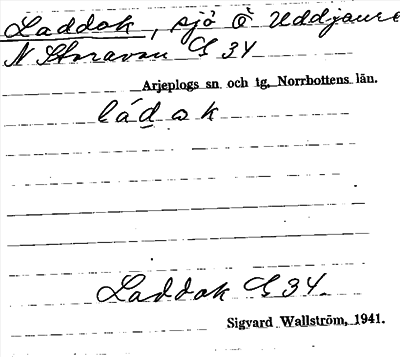 Laddok, sjö Ö Uddjaure
N Storavan G 34
Arjeplogs sn. och tg, Norrbottens län.
láḏɷk
Laddok G 34.
Sigvard Wallström, 1941.